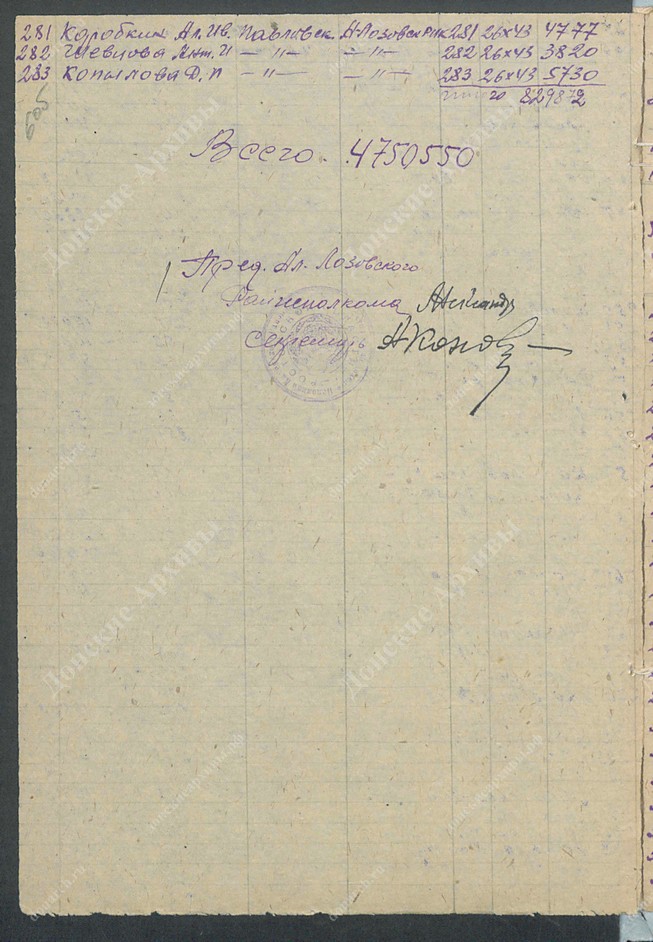 281 Коробкин Ал. Ив. Павловск А-Лозовск РИК 281 26х43 4777
282 Шевцова Ант. И — "— — "— 282 26х43 3820
283 Копылова Д. П — "— — "— 283 26х43 5730
Итого 829872
605
Всего. 4750550
Пред. Ал. Лозовского
Райисполкома
Секретарь
Донские Архивы